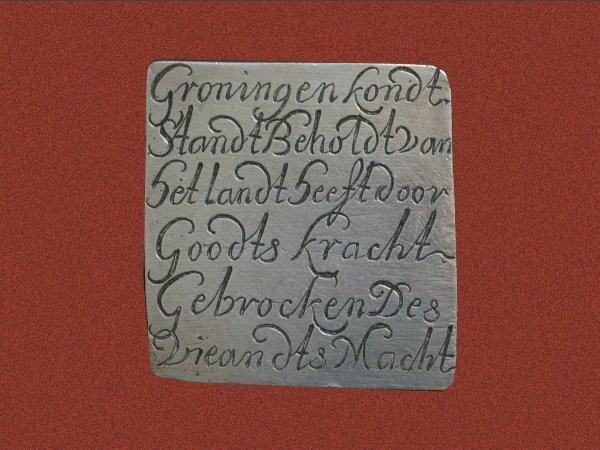 Groningen kondt
Standt Beholdt van
het landt heeft door
Goodts kracht
Gebrocken Des
Vieandts Macht